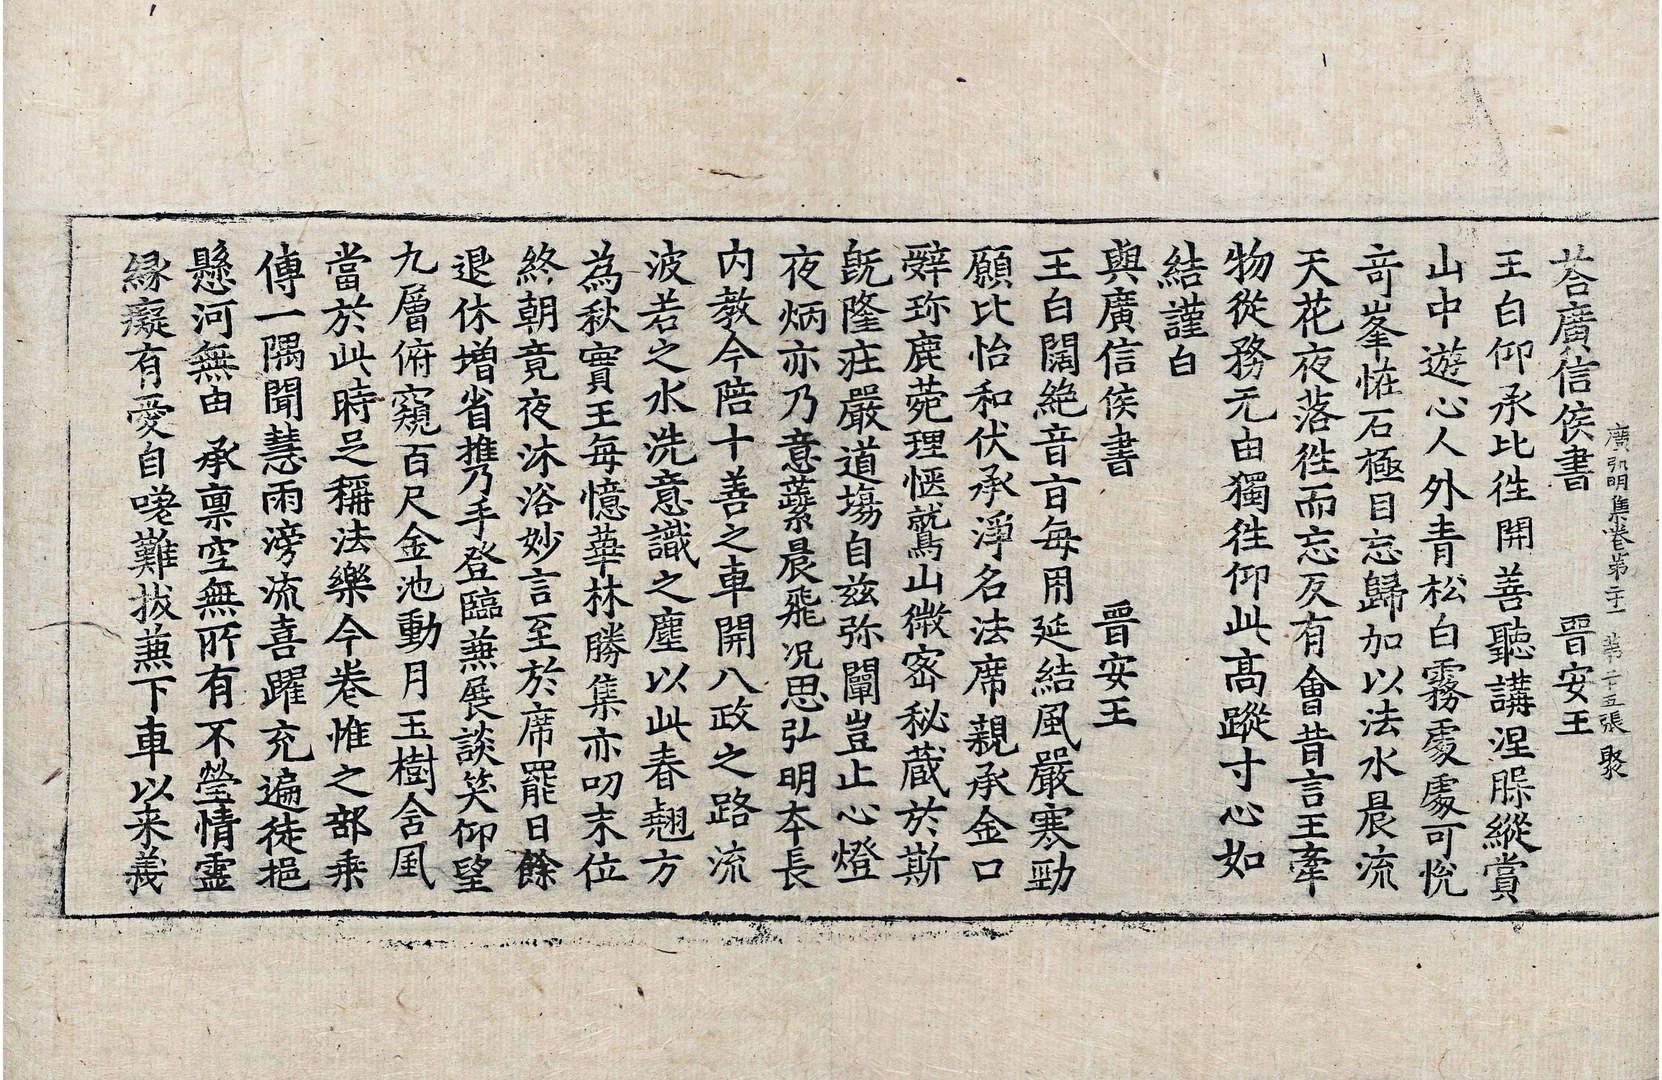 廣弘明集卷第二十一　第二十五張　聚
荅廣信侯書　晉安王
王白仰承比徃開善聽講涅脲縱賞
山中遊心人外青松白霧處處可悅
竒峯恠石極目忘歸加以法水晨流
天花夜落徃而忘反有會昔言王牽
物從務无由獨徃仰此高蹤寸心如
結謹白
與廣信侯書　晉安王
王白闊絶音旨每用延結風嚴寒勁
願比怡和伏承淨名法席親承金口
辤珎鹿菀理愜鷲山微密秘蔵於斯
旣隆莊嚴道塲自兹弥闡豈止心燈
夜炳亦乃意蘂晨飛况思弘明夲長
内教今陪十善之車開八政之路流
波若之水洗意識之塵以此春翹方
為秋實王每憶華林勝集亦叨末位
終朝竟夜沐浴妙言至於席罷日餘
退休増省携手登臨兼展談笑仰望
九層俯窺百尺金池動月玉樹含風
當於此時足稱法樂今卷惟之部乗
傳一隅聞慧雨滂流喜躍充遍徒挹
懸河無由承禀空無所有不瑩情靈
縁癡有愛自嗟難拔兼下車以来義